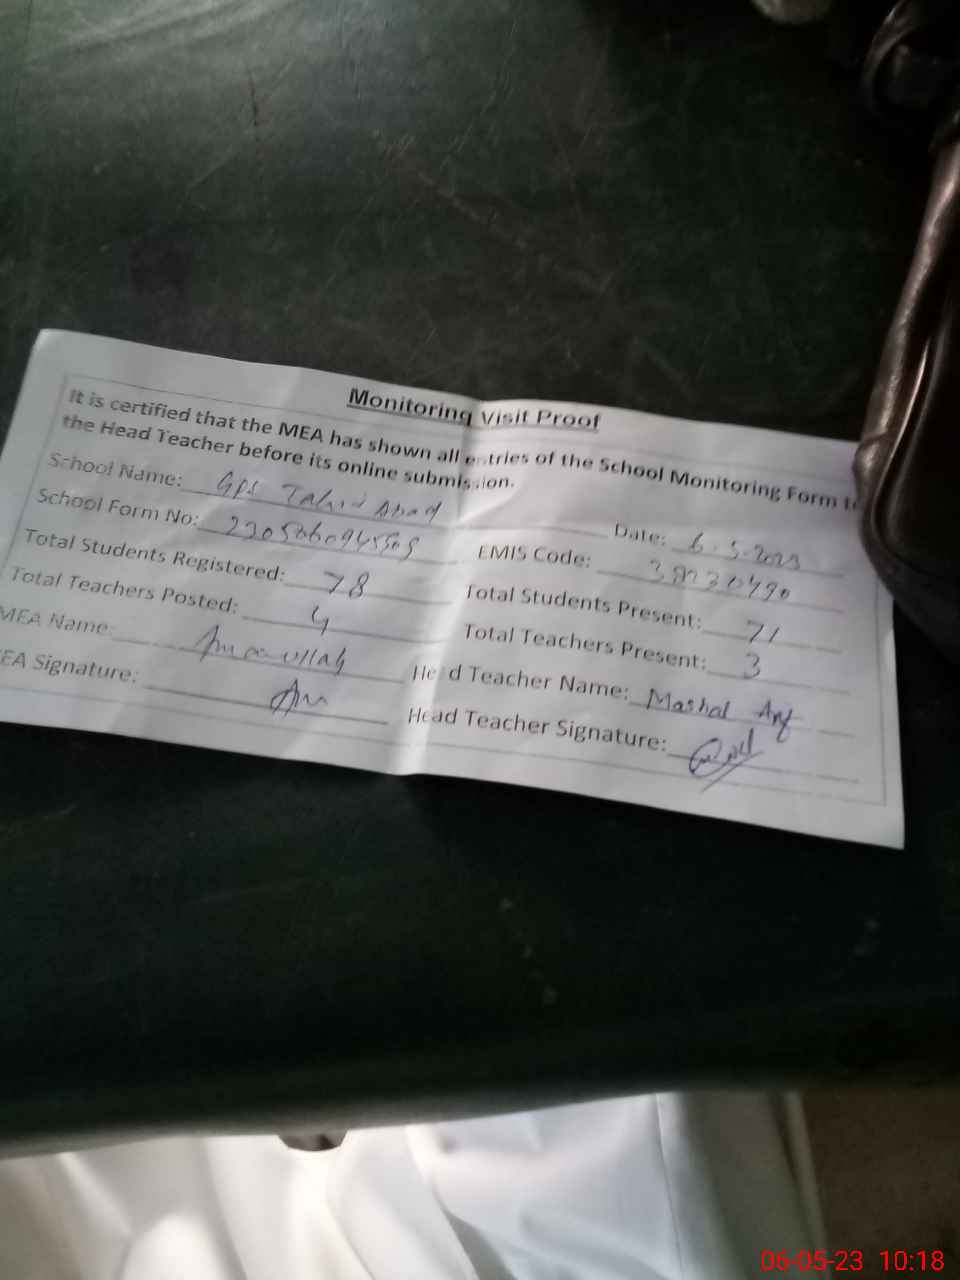 Monitoring Visit Proof
It is certified that the MEA has shown all entries of the School Monitoring Form to
the Head Teacher before its online submission.
School Name: GPS Abad Date: 6-5-2023
School Form No: EMIS Code:
Total Students Registered: 78 Total Students Present: 71
Total Teachers Posted: 4 Total Teachers Present: 3
MEA Name: Amanullah Head Teacher Name: Mashal
EA Signature: Head Teacher Signature:
06-05-23 10:18